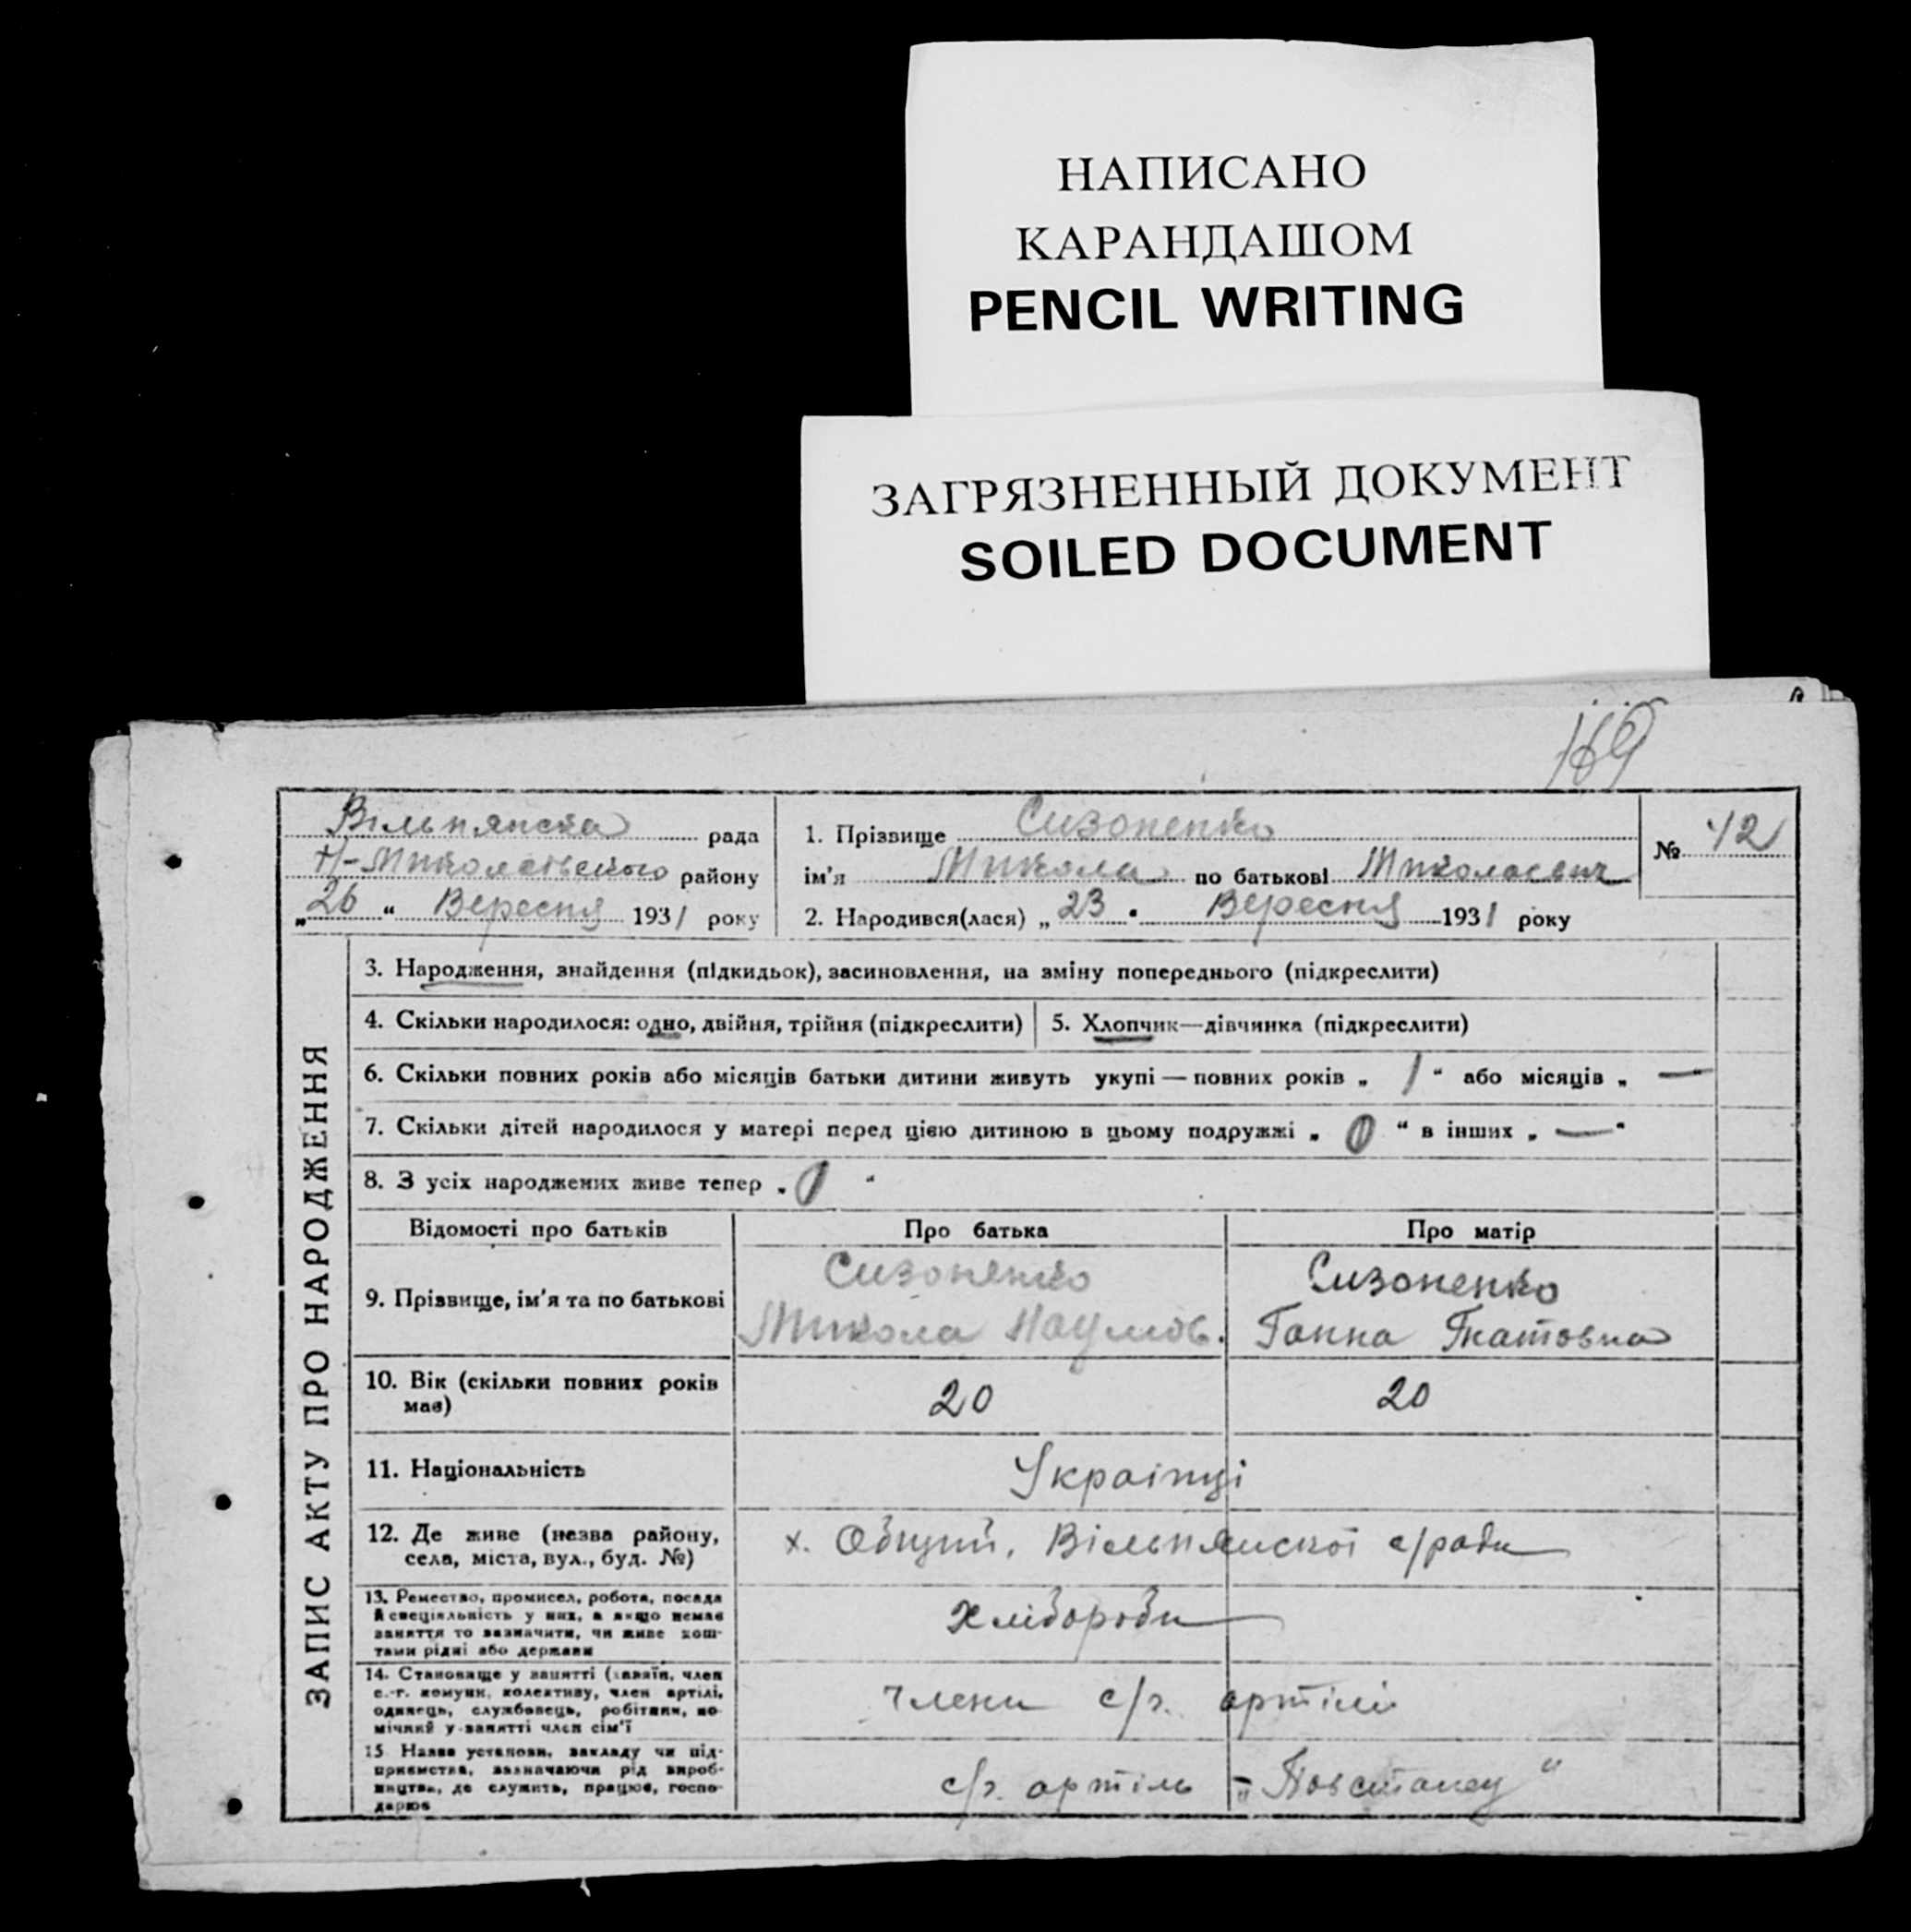 НАПИСАНО
КАРАНДАШОМ
PENCIL WRITING
ЗАГРЯЗНЕННЫЙ ДОКУМЕНТ
SOILED DOCUMENT
169
Вільнянска рада
Н-Миколаївського району
„26“ Вересня 1931 року
1. Прізвище Сизоненко
ім'я Микола по батькові Миколаєвич
2. Народився(лася) „23 Вересня 1931 року
№ 42
ЗАПИС АКТУ ПРО НАРОДЖЕННЯ
3. Народження, знайдення (підкидьок), засиновлення, на зміну попереднього (підкреслити)
4. Скільки народилося: одно, двійня, трійня (підкреслити) 5. Хлопчик—дівчинка (підкреслити)
6. Скільки повних років або місяців батьки дитини живуть укупі — повних років „ 1 “ або місяців „ — “
7. Скільки дітей народилося у матері перед цією дитиною в цьому подружжі „ 0 “ в інших „ — “
8. З усіх народжених живе тепер „ 0 “
Відомості про батьків Про батька Про матір
9. Прізвище, ім'я та по батькові
Сизоненко
Микола Наумов.
Сизоненко
Ганна Гнатовна
10. Вік (скільки повних років
має)
20 20
11. Національність
Українці
12. Де живе (незва району,
села, міста, вул., буд. №)
х. Общий, Вільнянскої с/ради
13. Ремество, промисел, робота, посада
й спеціяльність у них, а якщо немає
заняття то зазначити, чи живе кош-
тами рідні або держави
Хлібороби
14. Становище у занятті (хазяїн, член
с.-г. комуни, колективу, член артілі,
одинець, службовець, робітник, по-
мічний у занятті член сім'ї
Члени с/г. артілі
15 Назва установи, закладу чи під-
приємства, зазначаючи рід вироб-
ництва, де служить, працює, госпо-
дарює
с/г. артіль „Повстанец“